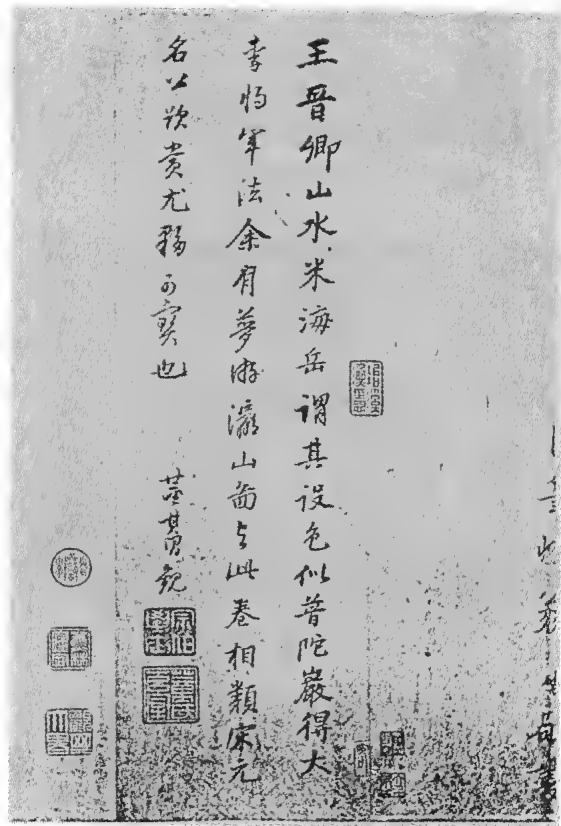 王晉卿山水米海岳謂其設色似普陀巖得大
李將軍法余有夢游瀛山圖与此卷相類宋元
名公欣賞尤夥可寶也
董其昌觀